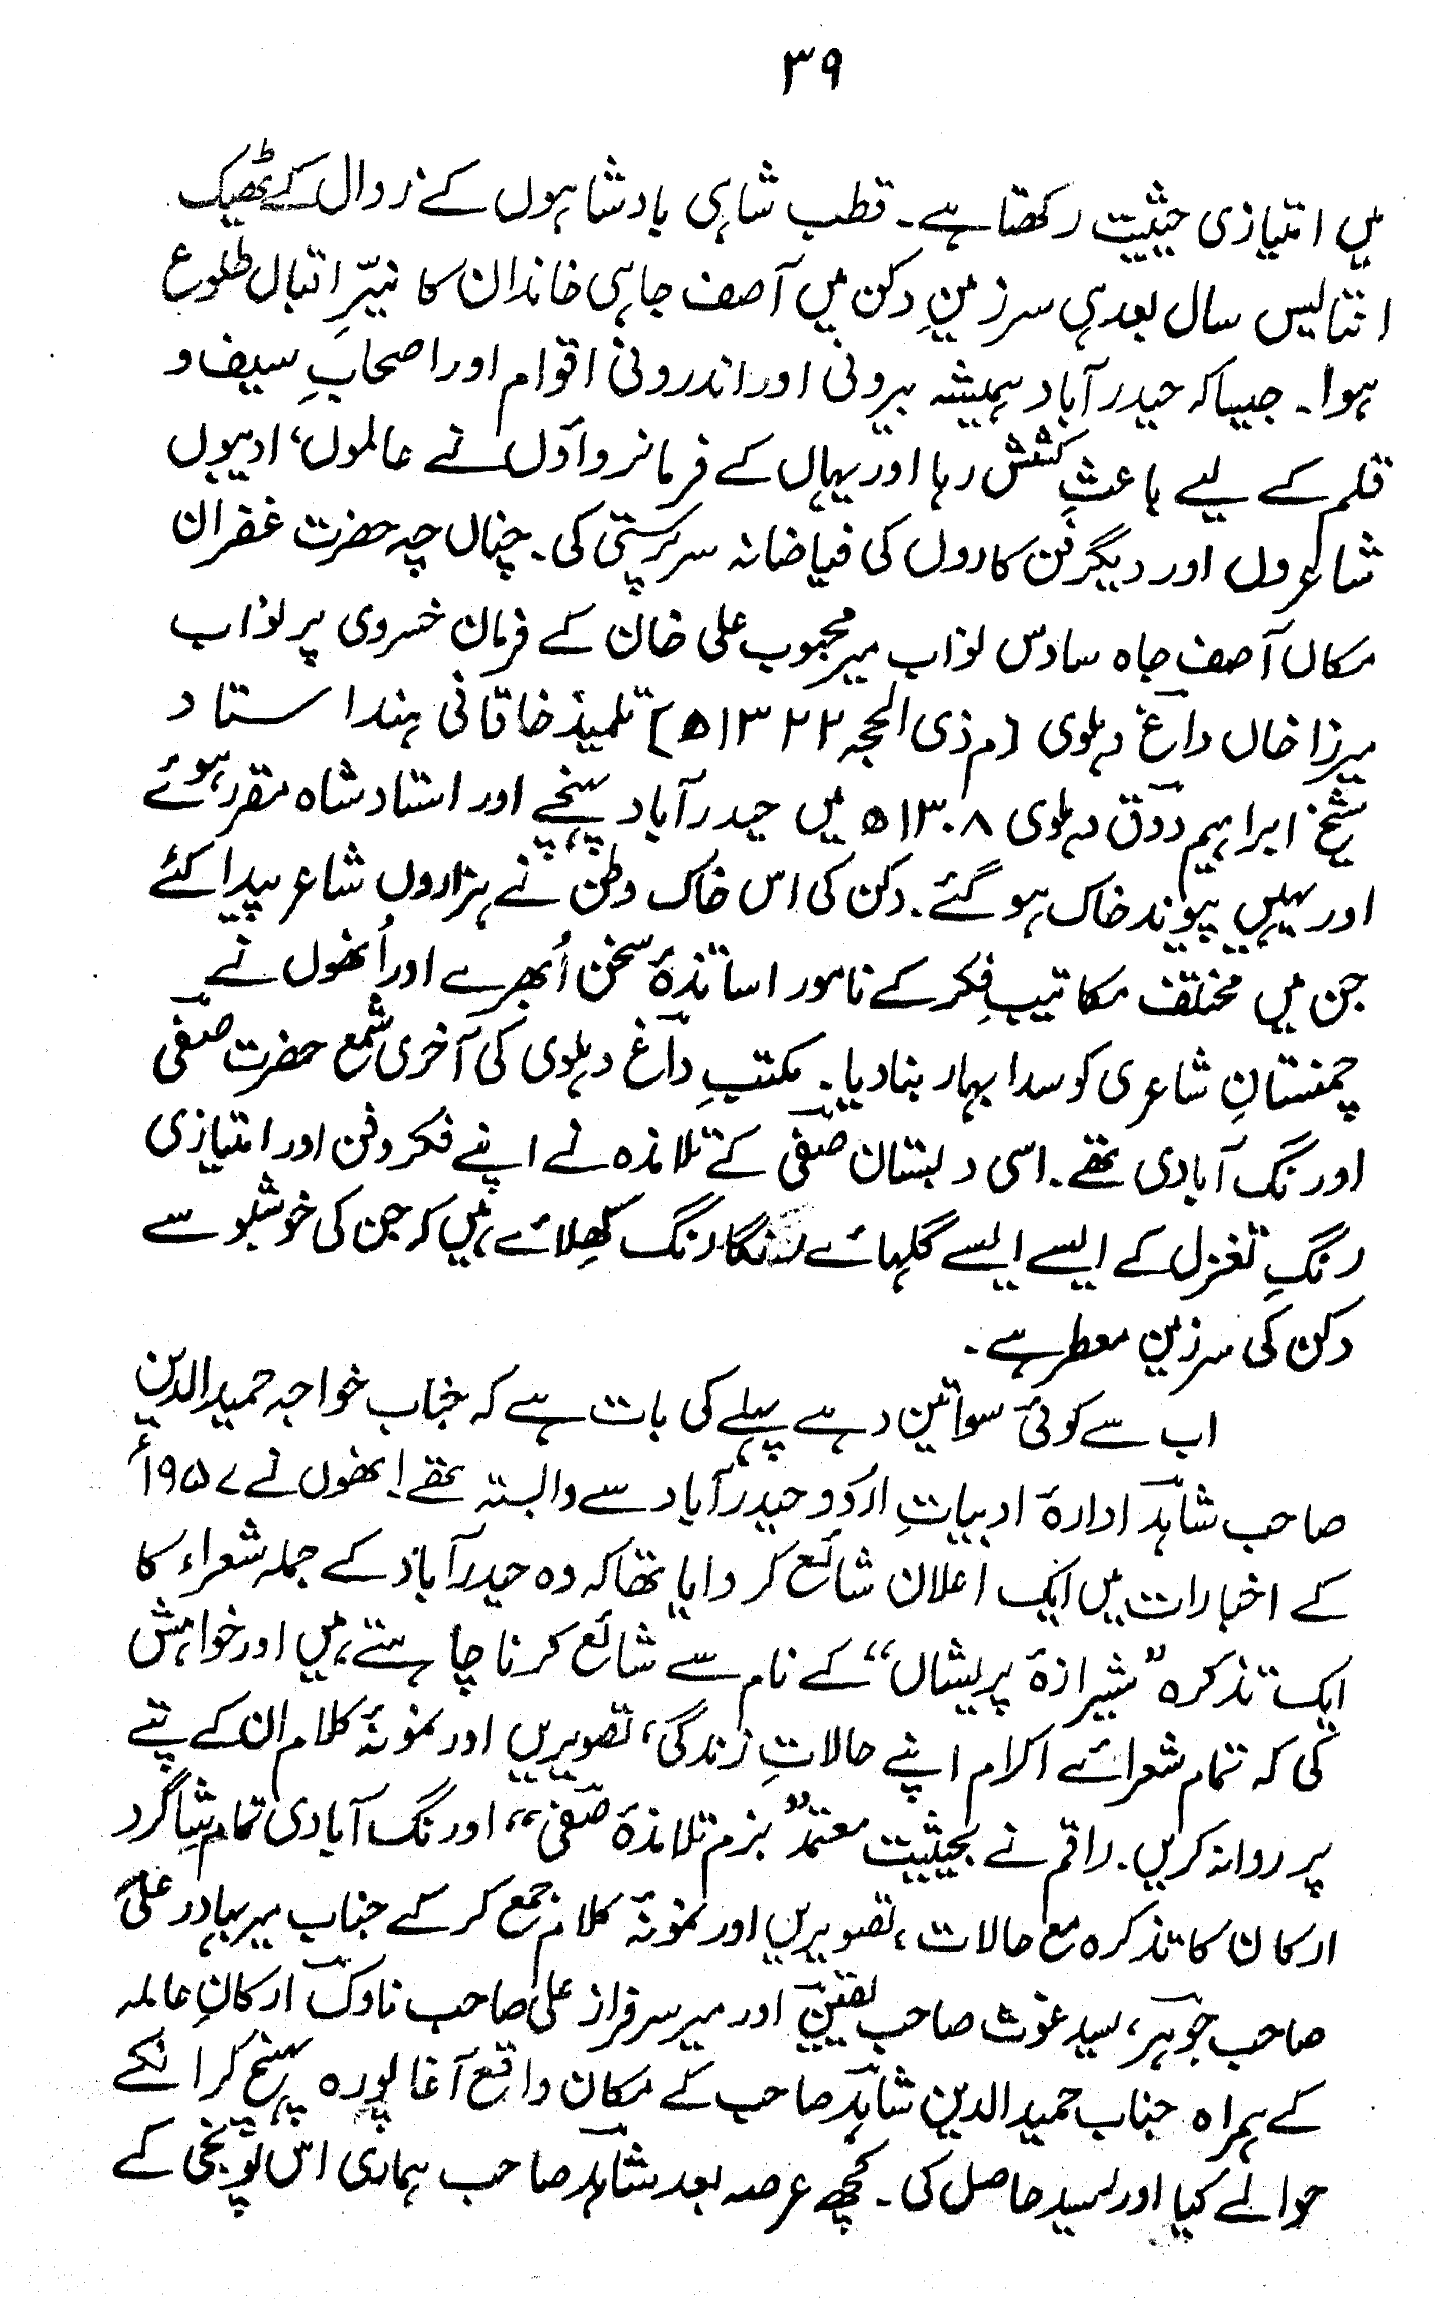 ۳۹
میں امتیازی حیثیت رکھتا ہے۔ قطب شاہی بادشاہوں کے زوال کے ٹھیک
انتالیس سال بعد ہی سرزمینِ دکن میں آصف جاہی خاندان کا نیّرِ اقبال طلوع
ہوا۔ جیسا کہ حیدرآباد ہمیشہ بیرونی اور اندرونی اقوام اور اصحابِ سیف و
قلم کے لیے باعثِ کشش رہا اور یہاں کے فرمانرواؤں نے عالموں، ادیبوں
شاعروں اور دیگر فن کاروں کی فیاضانہ سرپرستی کی۔ چناں چہ حضرت غفران
مکاں آصف جاہ سادس نواب میر محبوب علی خان کے فرمان خسروی پر نواب
میرزا خاں داغؔ دہلوی [م ذی الحجہ ۱۳۲۲ھ] تلمیذ خاقانی ہند استاد
شیخ ابراہیم ذوقؔ دہلوی ۱۳۰۸ھ میں حیدرآباد پہنچے اور استاد شاہ مقرر ہوئے
اور یہیں پیوند خاک ہو گئے۔ دکن کی اس خاک وطن نے ہزاروں شاعر پیدا کئے
جن میں مختلف مکاتیبِ فکر کے نامور اساتذۂ سخن اُبھرے اور اُنھوں نے
چمنستانِ شاعری کو سدا بہار بنا دیا۔ مکتبِ داغؔ دہلوی کی آخری شمع حضرت صفیؔ
اورنگ آبادی تھے۔ اسی دبستان صفیؔ کے تلامذہ نے اپنے فکر و فن اور امتیازی
رنگِ تغزل کے ایسے ایسے گلہائے رنگا رنگ کھِلائے ہیں کہ جن کی خوشبو سے
دکن کی سرزمین معطر ہے۔
اب سے کوئی سوا تین دہے پہلے کی بات ہے کہ جناب خواجہ حمید الدین
صاحب شاہدؔ ادارۂ ادبیاتِ اردو حیدرآباد سے وابستہ تھے انھوں نے ۱۹۵۷ء
کے اخبارات میں ایک اعلان شائع کروایا تھا کہ وہ حیدرآباد کے جملہ شعراء کا
ایک تذکرہ ”شیرازۂ پریشاں“ کے نام سے شائع کرنا چاہتے ہیں اور خواہش
کی کہ تمام شعرائے اکرام اپنے حالاتِ زندگی، تصویریں اور نمونۂ کلام ان کے پتے
پر روانہ کریں۔ راقم نے بحیثیت معتمد ”بزم تلامذۂ صفیؔ“، اورنگ آبادی تمام شاگرد
ارکان کا تذکرہ مع حالات، تصویریں اور نمونۂ کلام جمع کر کے جناب میر بہادر علی
صاحب جوہرؔ، سید غوث صاحب یقینؔ اور میر سرفراز علی صاحب ناوکؔ ارکانِ عاملہ
کے ہمراہ جناب حمید الدین شاہدؔ صاحب کے مکان واقع آغا پورہ پہنچ کر انکے
حوالے کیا اور رسید حاصل کی۔ کچھ عرصہ بعد شاہدؔ صاحب ہماری اس پونجی کے